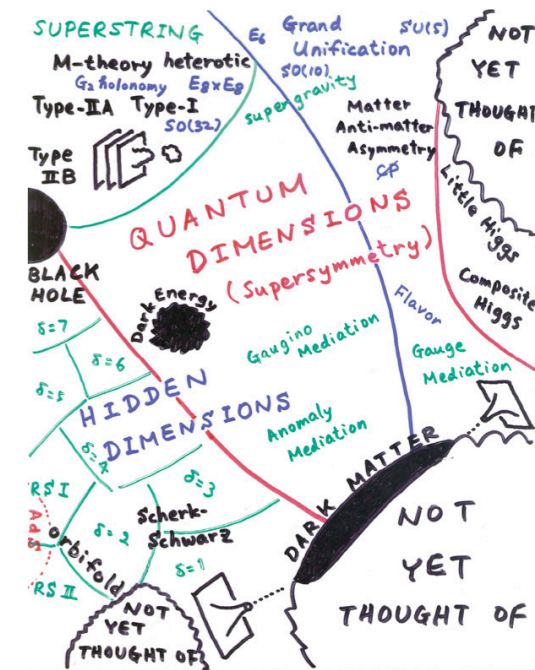 SUPERSTRING
M-theory heterotic
G₂ holonomy E₈×E₈
Type-IIA Type-I
SO(32)
Type
IIB
E₆ Grand
Unification
SU(5)
SO(10)
supergravity
Matter
Anti-matter
Asymmetry
CP
NOT
YET
THOUGHT
OF
Little Higgs
Composite
Higgs
QUANTUM
DIMENSIONS
(Supersymmetry)
BLACK
HOLE
Dark Energy
Flavor
Gaugino
Mediation
Gauge
Mediation
Anomaly
Mediation
δ=7
δ=6
δ=5
HIDDEN
DIMENSIONS
δ=4
δ=3
RS I
AdS
orbifold
δ=2
Scherk-
Schwarz
RS II
δ=1
DARK MATTER
NOT
YET
THOUGHT OF
NOT
YET
THOUGHT OF